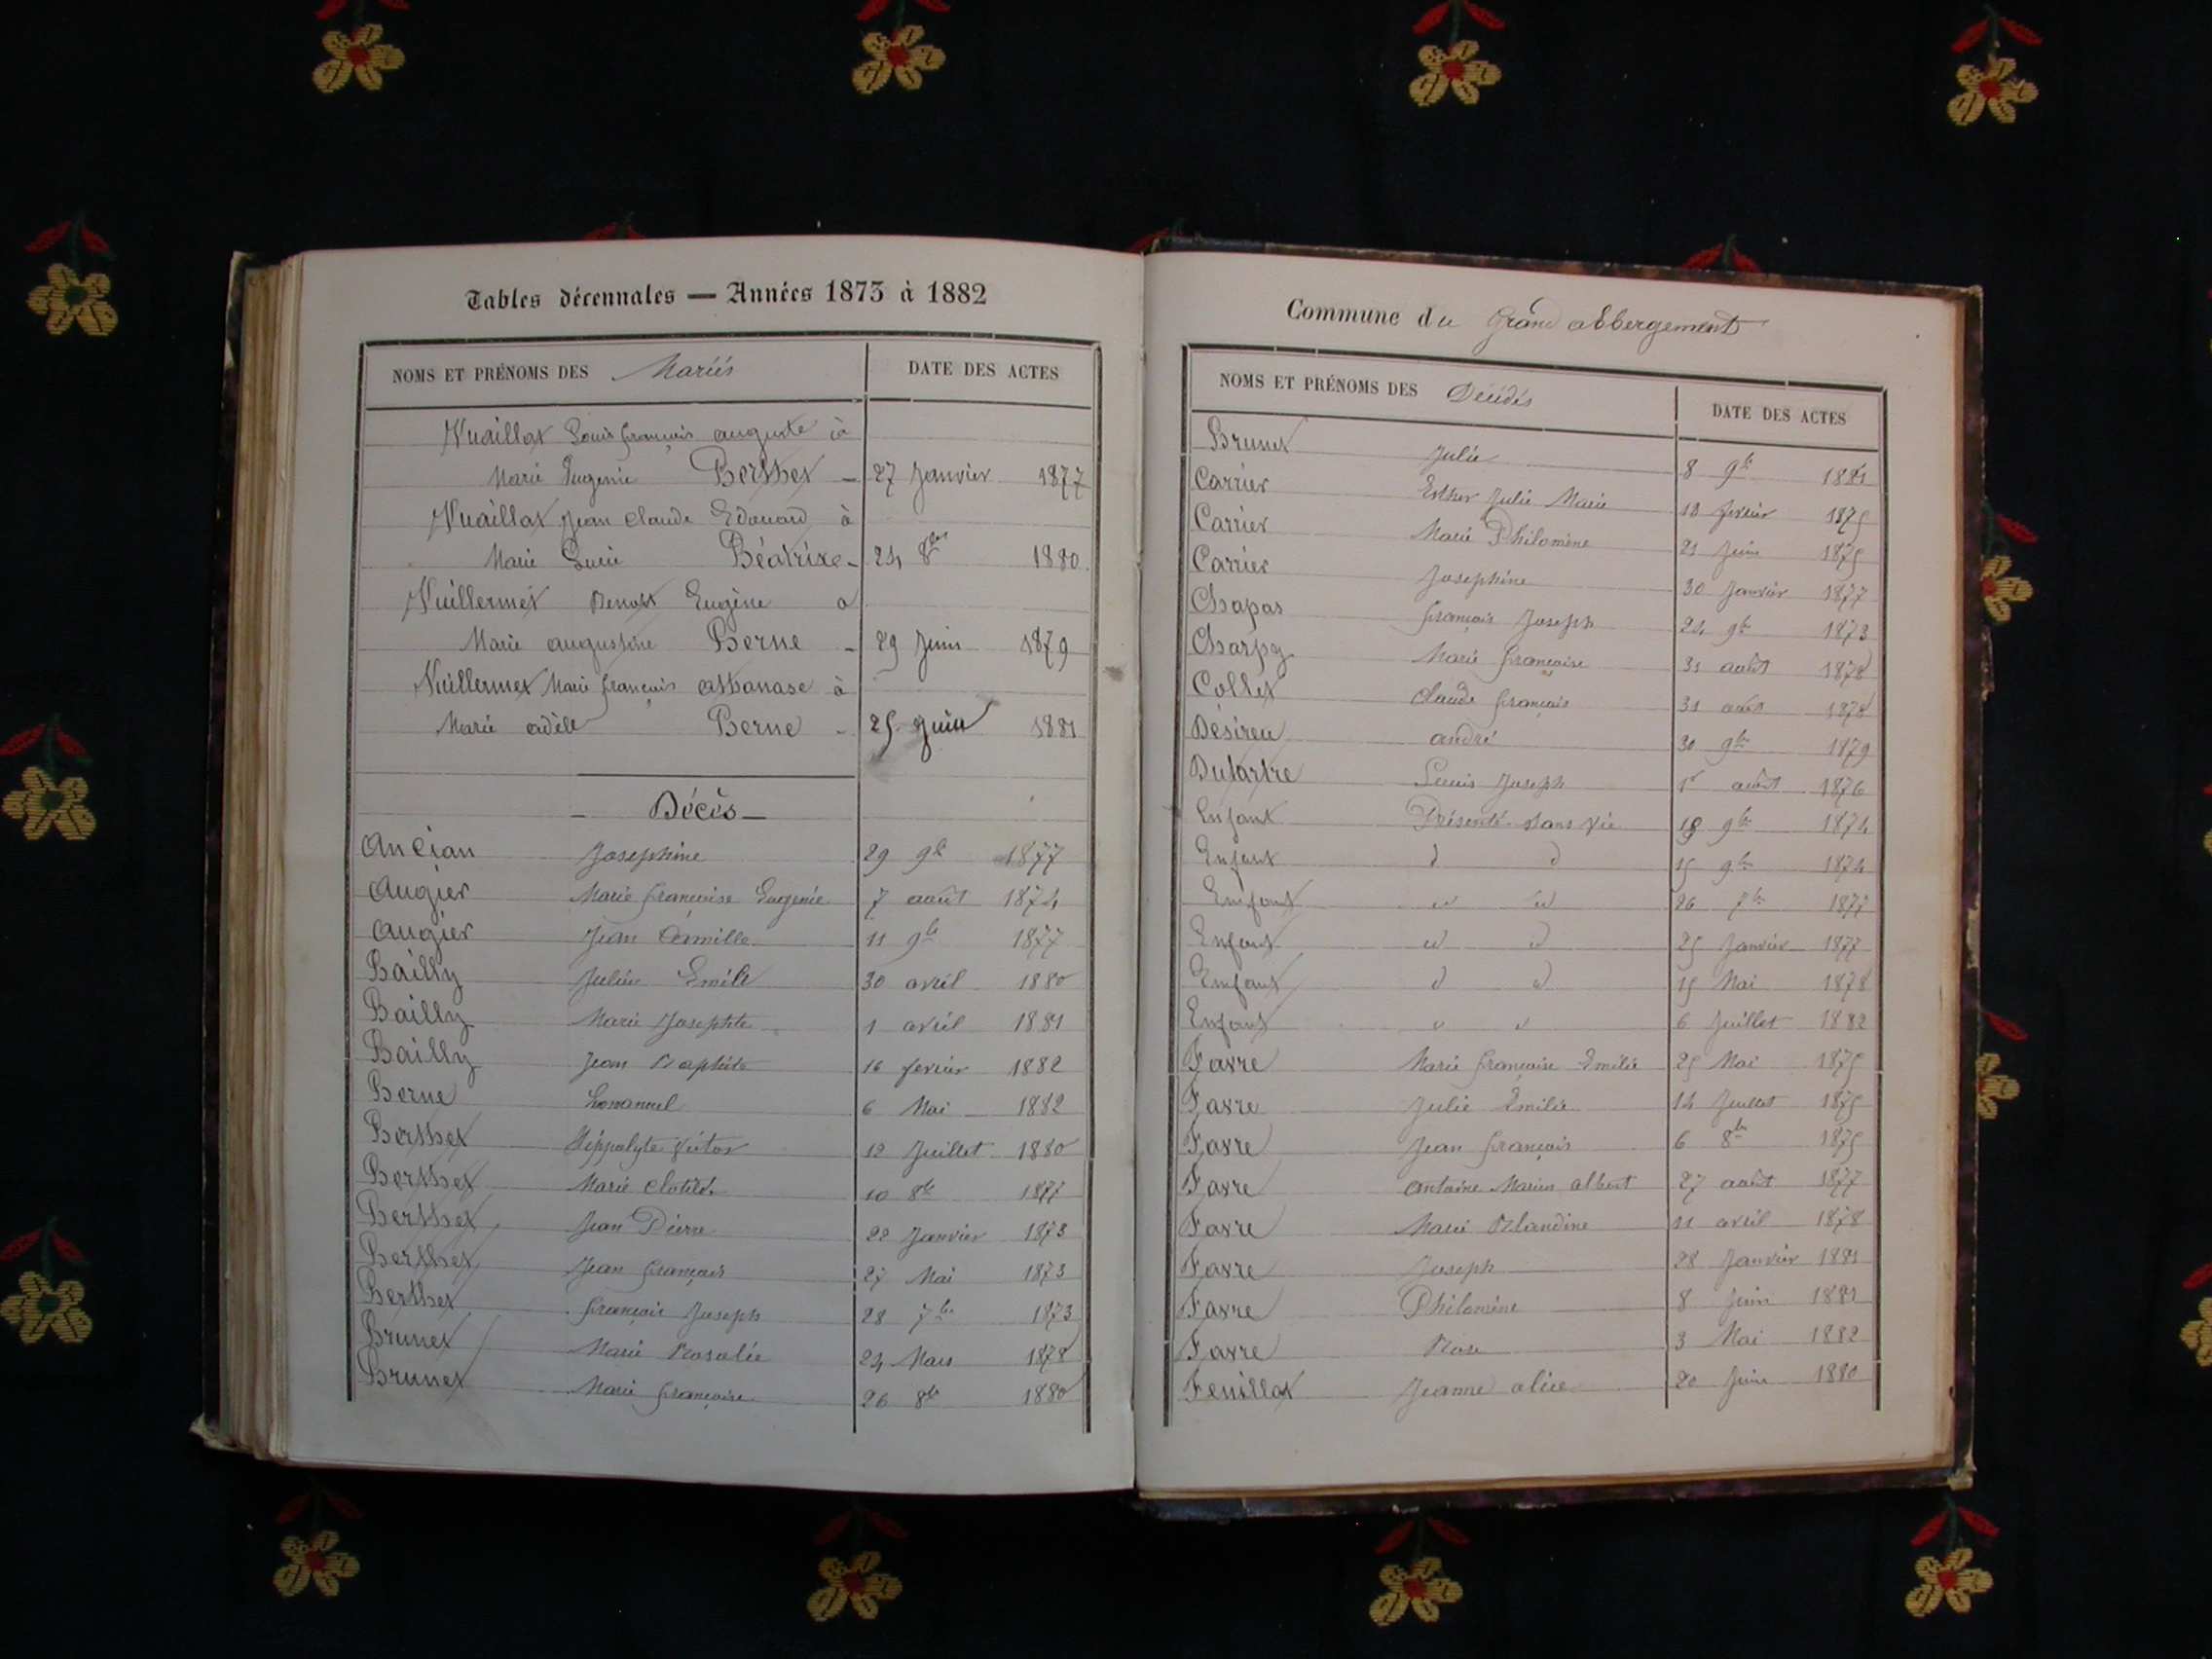 Tables décennales — Années 1873 à 1882
NOMS ET PRÉNOMS DES Mariés DATE DES ACTES
Vuaillat Louis françois auguste à
Marie Eugenie Berthet - 27 Janvier 1877
Vuaillat Jean Claude Edouard à
Marie Lucie Béatrixe - 24 8bre 1880
Vuillermet Benoit Eugène a
Marie augustine Berne - 29 Juin 1879
Vuillermet Marie françois athanase à
Marie adèle Berne - 25 Juin 1881
- Décès -
Ancian Josephine 29 9bre 1877
Augier Marie françoise Eugénie 7 août 1874
Augier Jean Camille 11 9bre 1877
Bailly Julien Emile 30 avril 1880
Bailly Marie Josephte 1 avril 1881
Bailly Jean Baptiste 16 fevrier 1882
Berne Emmanuel 6 Mai 1882
Berthet Hippolyte Victor 12 Juillet 1880
Berthet Marie Clotilde 10 8bre 1877
Berthet Jean Pierre 22 Janvier 1873
Berthet Jean françois 27 Mai 1873
Berthet françois Joseph 28 7bre 1873
Brunet Marie Rosalie 24 Mars 1878
Brunet Marie françoise 26 8bre 1880
Commune du Grand abbergement
NOMS ET PRÉNOMS DES Décédés DATE DES ACTES
Brunet Julie 8 9bre 1881
Carrier Esther Julie Marie 18 fevrier 1875
Carrier Marie Philomène 21 Juin 1875
Carrier Josephine 30 Janvier 1877
Chapas françois Joseph 24 9bre 1873
Charpy Marie françoise 31 août 1878
Collet Claude françois 31 août 1878
Désireu andré 30 9bre 1879
Dutartre Louis Joseph 1er août 1876
Enfant Présenté sans vie 18 9bre 1874
Enfant d d 15 9bre 1874
Enfant d d 26 7bre 1877
Enfant d d 25 Janvier 1877
Enfant d d 15 Mai 1878
Enfant d d 6 Juillet 1882
Favre Marie françoise Emélie 25 Mai 1875
Favre Julie Emilie 14 Juillet 1875
Favre Jean françois 6 8bre 1875
Favre antoine Marius albert 27 août 1877
Favre Marie Blandine 11 avril 1878
Favre Joseph 28 Janvier 1881
Favre Philomène 8 Juin 1881
Favre Rose 3 Mai 1882
Feuillat Jeanne alice 20 Juin 1880